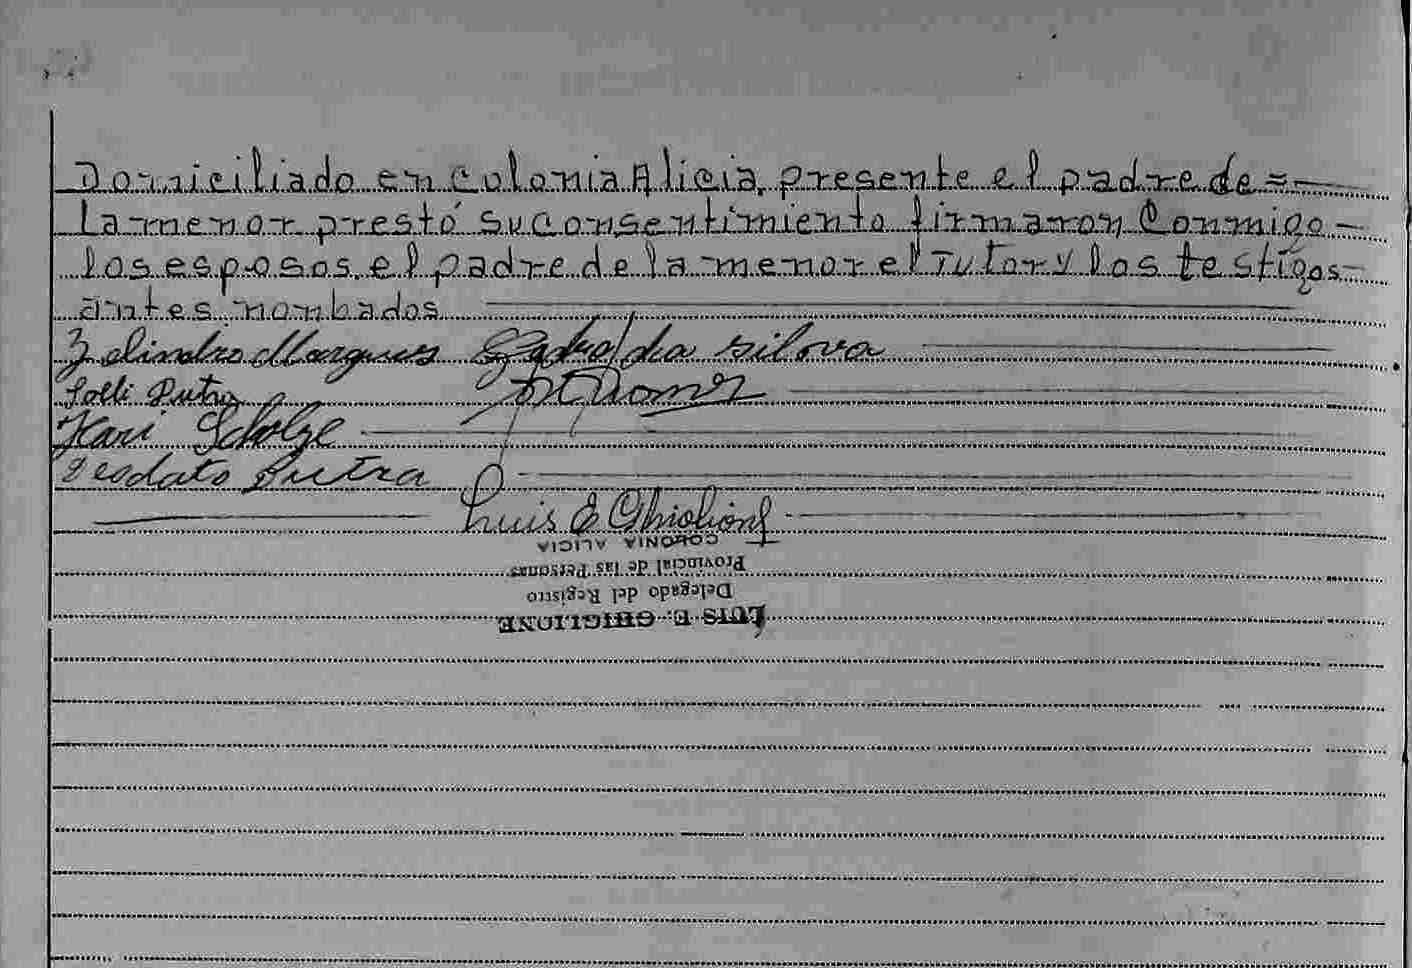 Domiciliado en Colonia Alicia, presente el padre de =
la menor prestó su consentimiento firmaron Conmigo -
los esposos, el padre de la menor el Tutor y los testigos -
antes nombados
Zelindro Marques Pedro da silova
Kari Scholze
Deodato Dutra
Luis E Ghiglione
COLONIA ALICIA
Provincial de las Personas
Delegado del Registro
LUIS E. GHIGLIONE